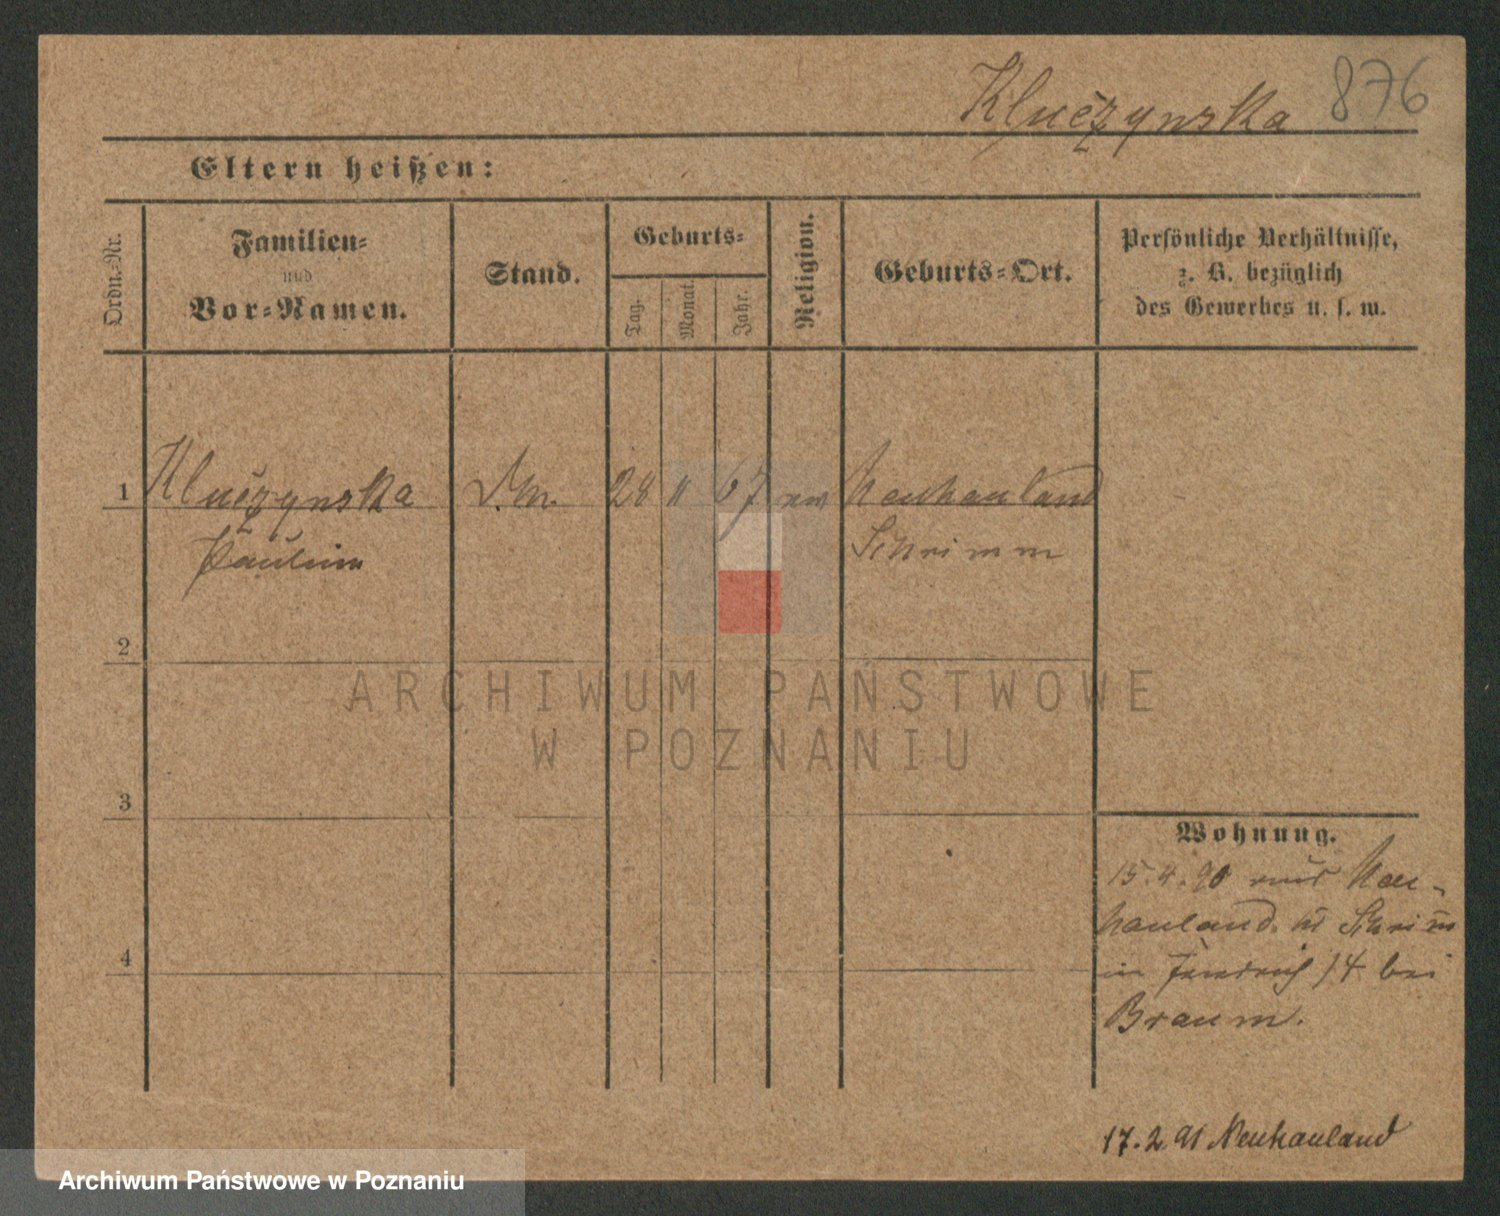 Kluczynska 876
Eltern heißen:
Ordn.-Nr.
Familien-
und
Vor-Namen.
Stand.
Geburts-
Tag.
Monat.
Jahr.
Religion.
Geburts-Ort.
Persönliche Verhältnisse,
z. B. bezüglich
des Gewerbes u. s. w.
1 Kluczynska 28 11 67 Neuhauland
Paulin Schrimm
2
3
4
ARCHIWUM PAŃSTWOWE
W POZNANIU
Wohnung.
15.4.90 aus Neu-
hauland Schrim
in Friedrich 14 bei
Braum.
17.2.91 Neuhauland
Archiwum Państwowe w Poznaniu